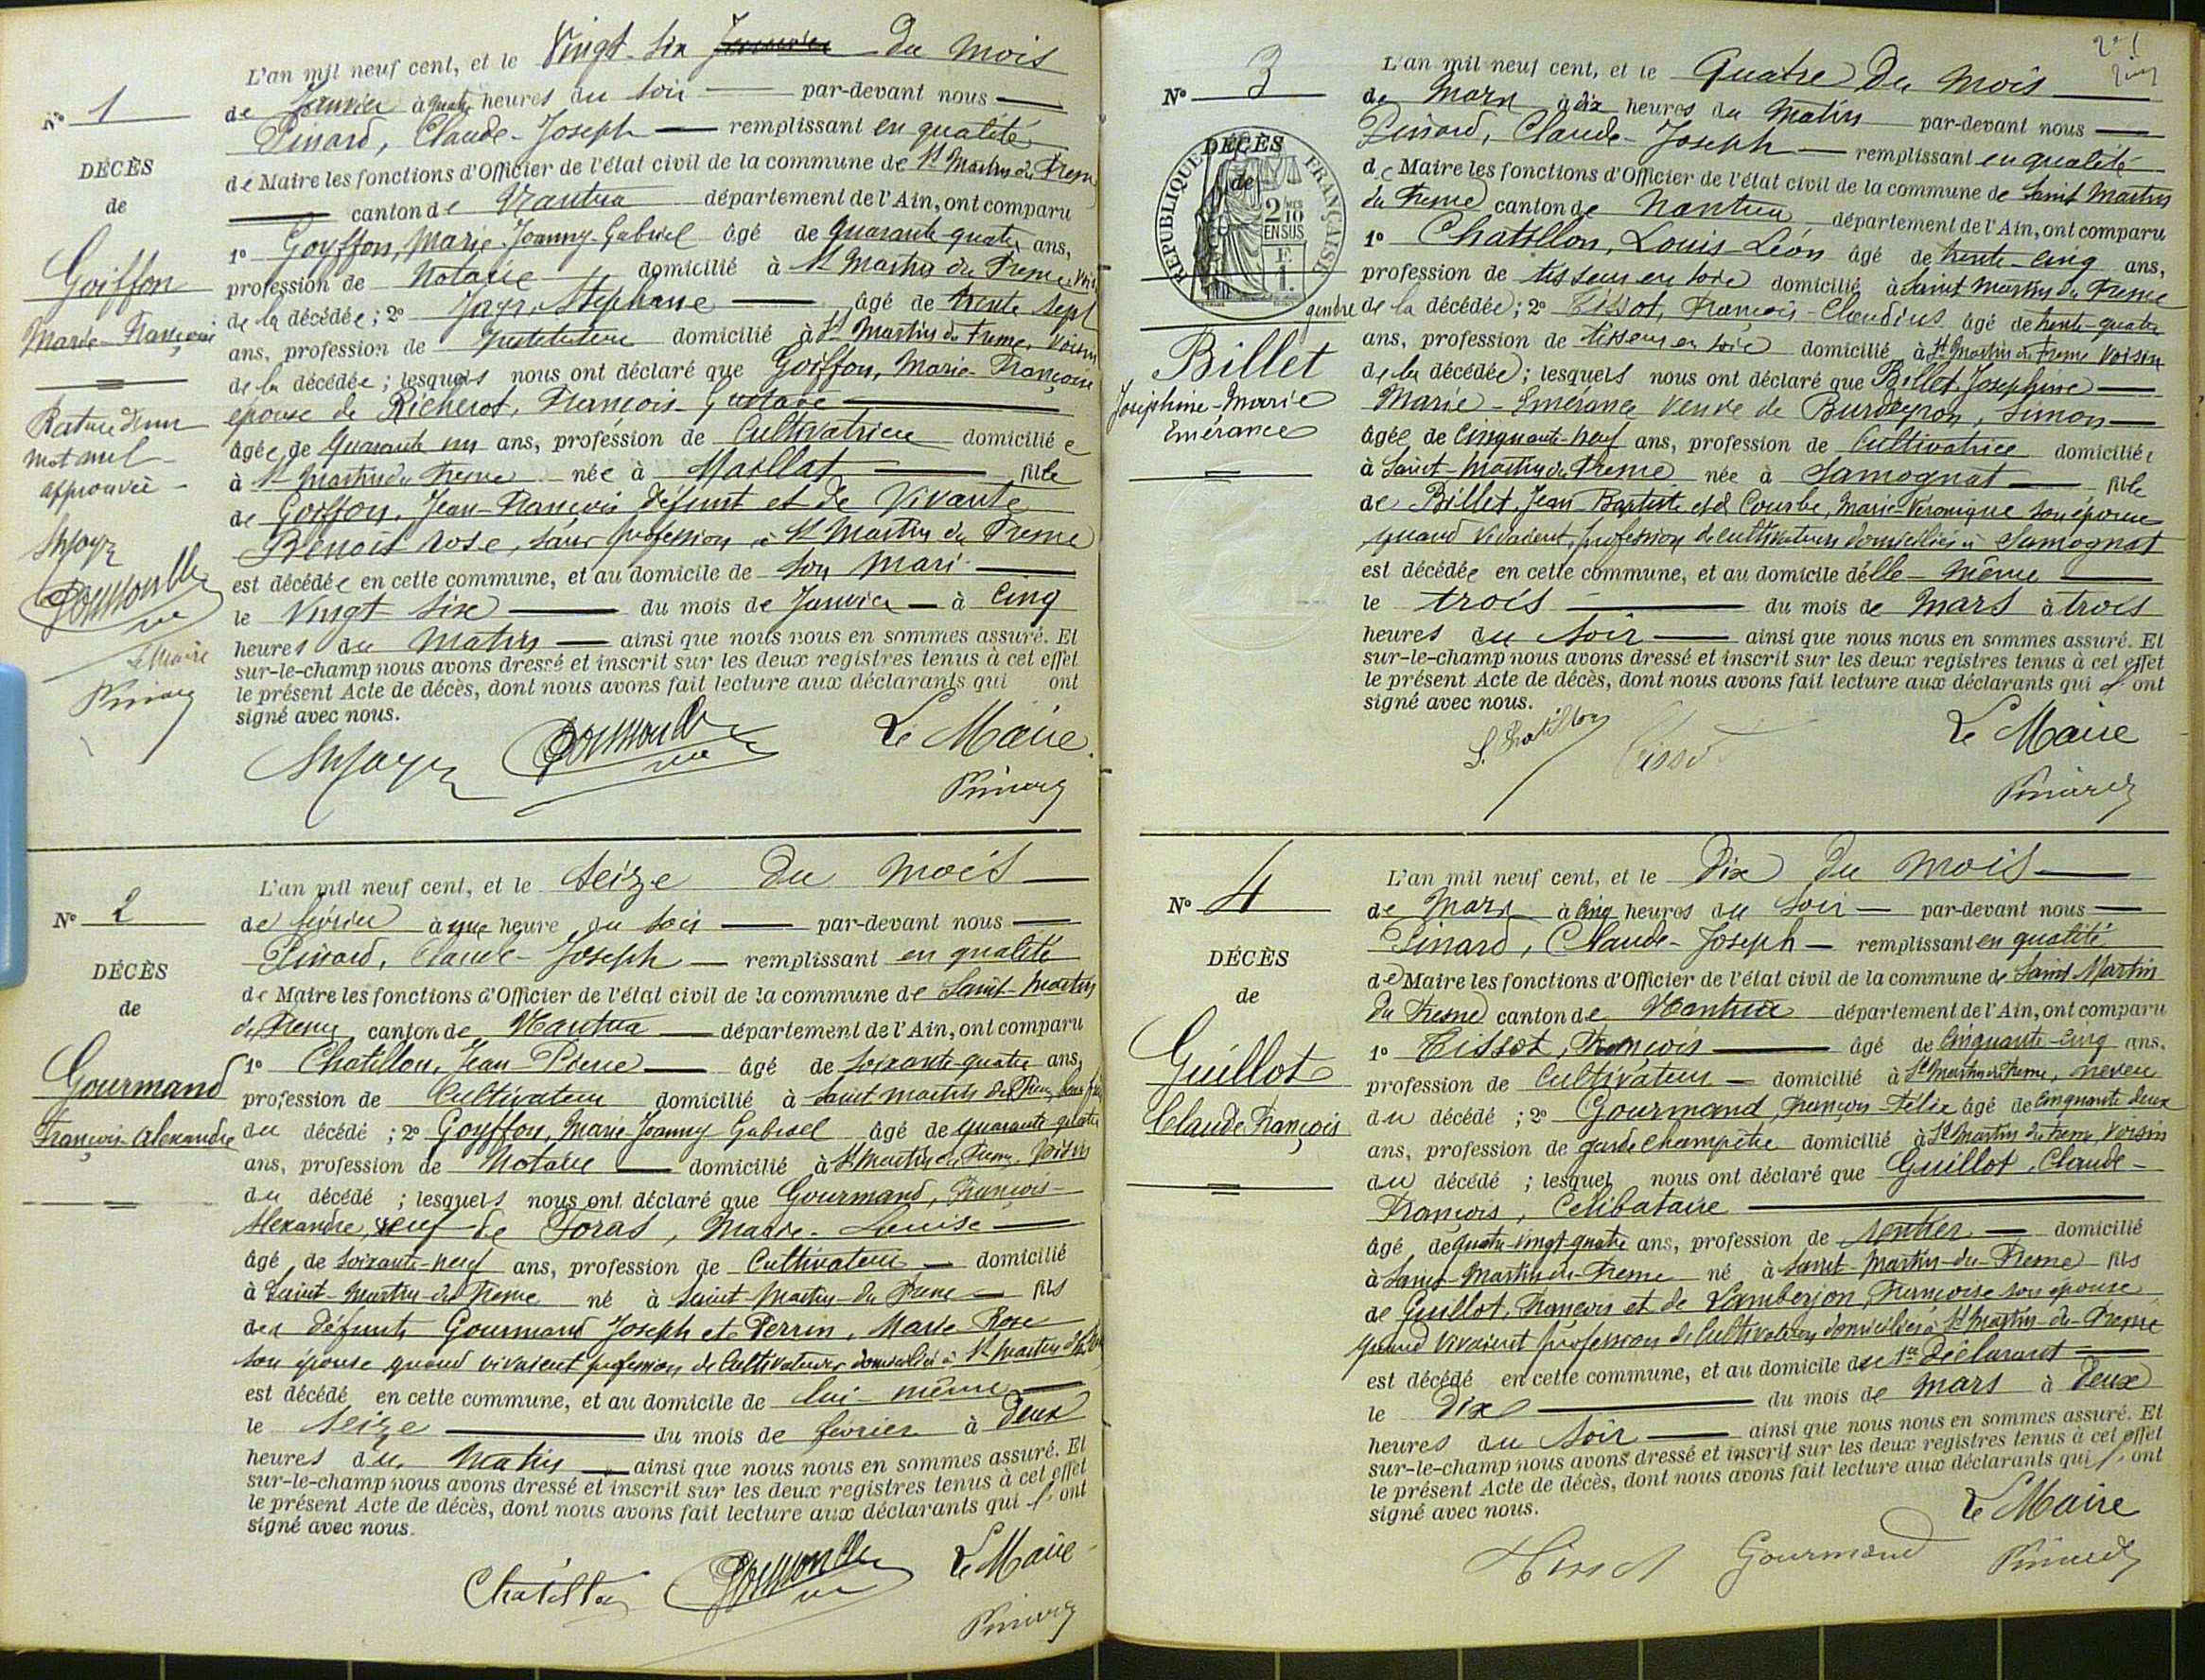 L'an mil neuf cent, et le Vingt-six Janvier du mois
de Janvier à quatre heures du soir par-devant nous
Pinard, Claude-Joseph remplissant en qualité
de Maire les fonctions d'Officier de l'état civil de la commune de St Martin du Fresne
canton de Nantua département de l'Ain, ont comparu
1° Goyffon, Marie-Joanny-Gabriel âgé de Quarante quatre ans,
profession de Notaire domicilié à St Martin du Fresne, voisin
de la décédée ; 2° Stéphane âgé de trente sept
ans, profession de Instituteur domicilié à St Martin du Fresne, voisin
de la décédée ; lesquels nous ont déclaré que Goiffon, Marie-Françoise
épouse de Richerot, François-Gustave
âgée de Quarante un ans, profession de Cultivatrice domiciliée
à St Martin du Fresne née à Maillat fille
de Goiffon, Jean-François défunt et de Vivante
Benoit rose, sans profession, à St Martin du Fresne
est décédée en cette commune, et au domicile de son mari
le vingt six du mois de Janvier à cinq
heures du matin ainsi que nous nous en sommes assuré. Et
sur-le-champ nous avons dressé et inscrit sur les deux registres tenus à cet effet
le présent Acte de décès, dont nous avons fait lecture aux déclarants qui ont
signé avec nous.
Le Maire
Pinard
N° 1
DÉCÈS
de
Goiffon
Marie-Françoise
Rature d'un
mot nul
approuvée
Le Maire
Pinard
L'an mil neuf cent, et le Seize du mois
de février à une heure du soir par-devant nous
Pinard, Claude-Joseph remplissant en qualité
de Maire les fonctions d'Officier de l'état civil de la commune de Saint-Martin
du Fresne canton de Nantua département de l'Ain, ont comparu
1° Chatillon, Jean-Pierre âgé de soixante-quatre ans,
profession de Cultivateur domicilié à Saint Martin du Fresne, beau frère
du décédé ; 2° Goyffon, Marie-Joanny-Gabriel âgé de quarante quatre
ans, profession de Notaire domicilié à St Martin du Fresne, Voisin
du décédé ; lesquels nous ont déclaré que Gourmand, François-
Alexandre, veuf de Foras, Marie-Louise
âgé de soixante-neuf ans, profession de Cultivateur domicilié
à Saint-Martin-du-Fresne né à Saint-Martin-du-Fresne fils
des défunts Gourmand Joseph et Perrin, Marie-Rose
son épouse quand vivaient profession de Cultivateurs domiciliés à St Martin du Fresne
est décédé en cette commune, et au domicile de lui-même
le seize du mois de février à deux
heures du matin ainsi que nous nous en sommes assuré. Et
sur-le-champ nous avons dressé et inscrit sur les deux registres tenus à cet effet
le présent Acte de décès, dont nous avons fait lecture aux déclarants qui l'ont
signé avec nous.
Chatillon
Le Maire
Pinard
N° 2
DÉCÈS
de
Gourmand
François-Alexandre
L'an mil neuf cent, et le Quatre du mois
de Mars à dix heures du matin par-devant nous
Pinard, Claude-Joseph remplissant en qualité
de Maire les fonctions d'Officier de l'état civil de la commune de Saint Martin
du Fresne canton de Nantua département de l'Ain, ont comparu
1° Chatillon, Louis-Léon âgé de trente-cinq ans,
profession de tisseur en soie domicilié à Saint Martin du Fresne
gendre de la décédée ; 2° Tissot, François-Claudius âgé de trente-quatre
ans, profession de tisseur en soie domicilié à St Martin du Fresne voisin
de la décédée ; lesquels nous ont déclaré que Billet, Joséphine
Marie-Emérance veuve de Burdeyron, Simon
âgée de Cinquante-neuf ans, profession de Cultivatrice domiciliée
à Saint-Martin du Fresne née à Samognat fille
de Billet, Jean Baptiste et de Courbe, Marie-Véronique son épouse
quand vivaient, profession de cultivateurs domiciliés à Samognat
est décédée en cette commune, et au domicile d'elle-même
le trois du mois de Mars à trois
heures du soir ainsi que nous nous en sommes assuré. Et
sur-le-champ nous avons dressé et inscrit sur les deux registres tenus à cet effet
le présent Acte de décès, dont nous avons fait lecture aux déclarants qui l'ont
signé avec nous.
L. Chatillon Tissot
Le Maire
Pinard
N° 3
RÉPUBLIQUE FRANÇAISE
DÉCÈS
de
2/10
EN SUS
F.
1.
Billet
Joséphine-Marie
Emérance
L'an mil neuf cent, et le Dix du mois
de Mars à cinq heures du soir par-devant nous
Pinard, Claude-Joseph remplissant en qualité
de Maire les fonctions d'Officier de l'état civil de la commune de Saint Martin
du Fresne canton de Nantua département de l'Ain, ont comparu
1° Tissot, François âgé de cinquante-cinq ans,
profession de Cultivateur domicilié à St Martin du Fresne, neveu
du décédé ; 2° Gourmand, François-Félix âgé de cinquante deux
ans, profession de garde champêtre domicilié à St Martin du Fresne, voisin
du décédé ; lesquels nous ont déclaré que Guillot, Claude-
François, Célibataire
âgé de quatre-vingt-quatre ans, profession de rentier domicilié
à Saint-Martin-du-Fresne né à Saint-Martin-du-Fresne fils
de Guillot, François et de Lamberjon, Françoise son épouse
quand vivaient profession de Cultivateurs domiciliés à St Martin-du-Fresne
est décédé en cette commune, et au domicile du 1er déclarant
le dix du mois de Mars à deux
heures du soir ainsi que nous nous en sommes assuré. Et
sur-le-champ nous avons dressé et inscrit sur les deux registres tenus à cet effet
le présent Acte de décès, dont nous avons fait lecture aux déclarants qui l'ont
signé avec nous.
Tissot Gourmand
Le Maire
Pinard
N° 4
DÉCÈS
de
Guillot
Claude François